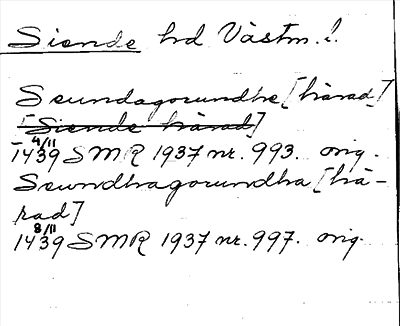 Siende hd Västm. l.
Seundagorundhe [härad]
[Siende härad]
4/11
1439 SMR 1937 nr. 993. orig.
Sewndhagorundha [hä-
rad]
8/11
1439 SMR 1937 nr. 997. orig.